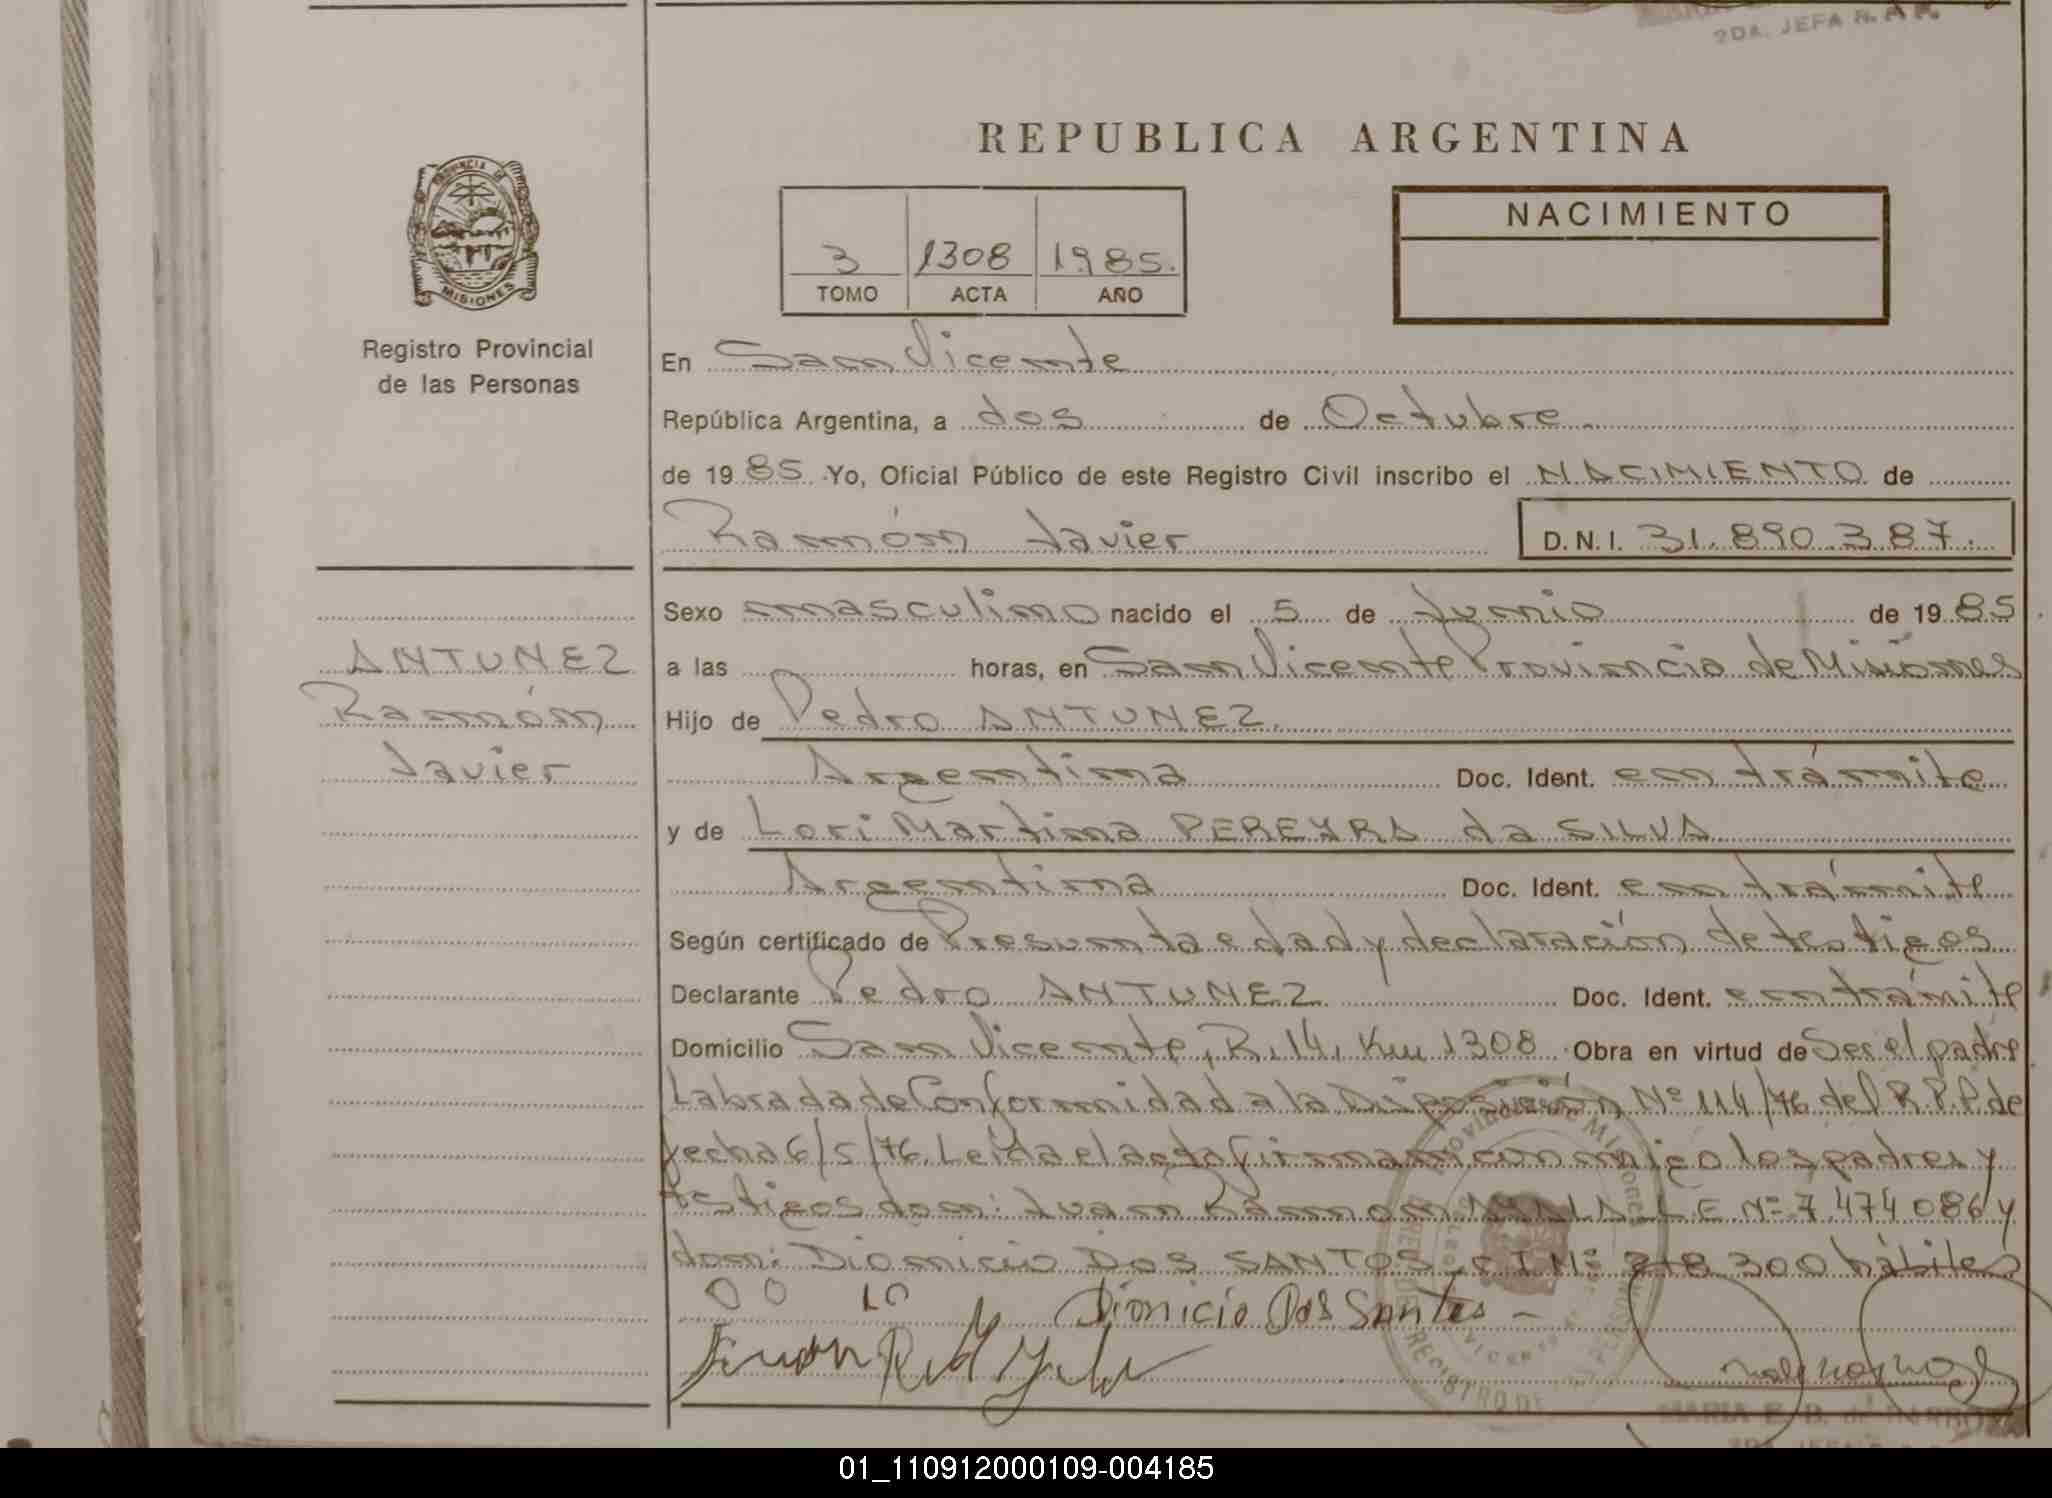 2DA. JEFA R.
REPUBLICA ARGENTINA
PROVINCIA DE
MISIONES
Registro Provincial
de las Personas
3 1308 1985.
TOMO ACTA AÑO
NACIMIENTO
En San Vicente
República Argentina, a dos de Octubre
de 19 85 Yo, Oficial Público de este Registro Civil inscribo el NACIMIENTO de
Ramón Javier D.N.I. 31.890.387.
ANTUNEZ
Ramón
Javier
Sexo masculino nacido el 5 de Junio de 19 85
a las horas, en San Vicente Provincia de Misiones
Hijo de Pedro ANTUNEZ.
Argentina Doc. Ident. en trámite
y de Lori Martina PEREYRA da SILVA
Argentina Doc. Ident. en trámite
Según certificado de Presunta edad y declaración de testigos
Declarante Pedro ANTUNEZ Doc. Ident. en trámite
Domicilio San Vicente, R. 14, Km 1308 Obra en virtud de Ser el padre
Labrada de Conformidad a la Disposición Nº 114/76 del R.P.P. de
fecha 6/5/76. Leída el acta firman conmigo los padres y
testigos don: Juan Ramon AYALA L E Nº 7.474 086 y
don: Dionicio DOS SANTOS C I Nº 318 300 hábiles
Dionicio Dos Santos -
MARIA E. B. de
01_110912000109-004185